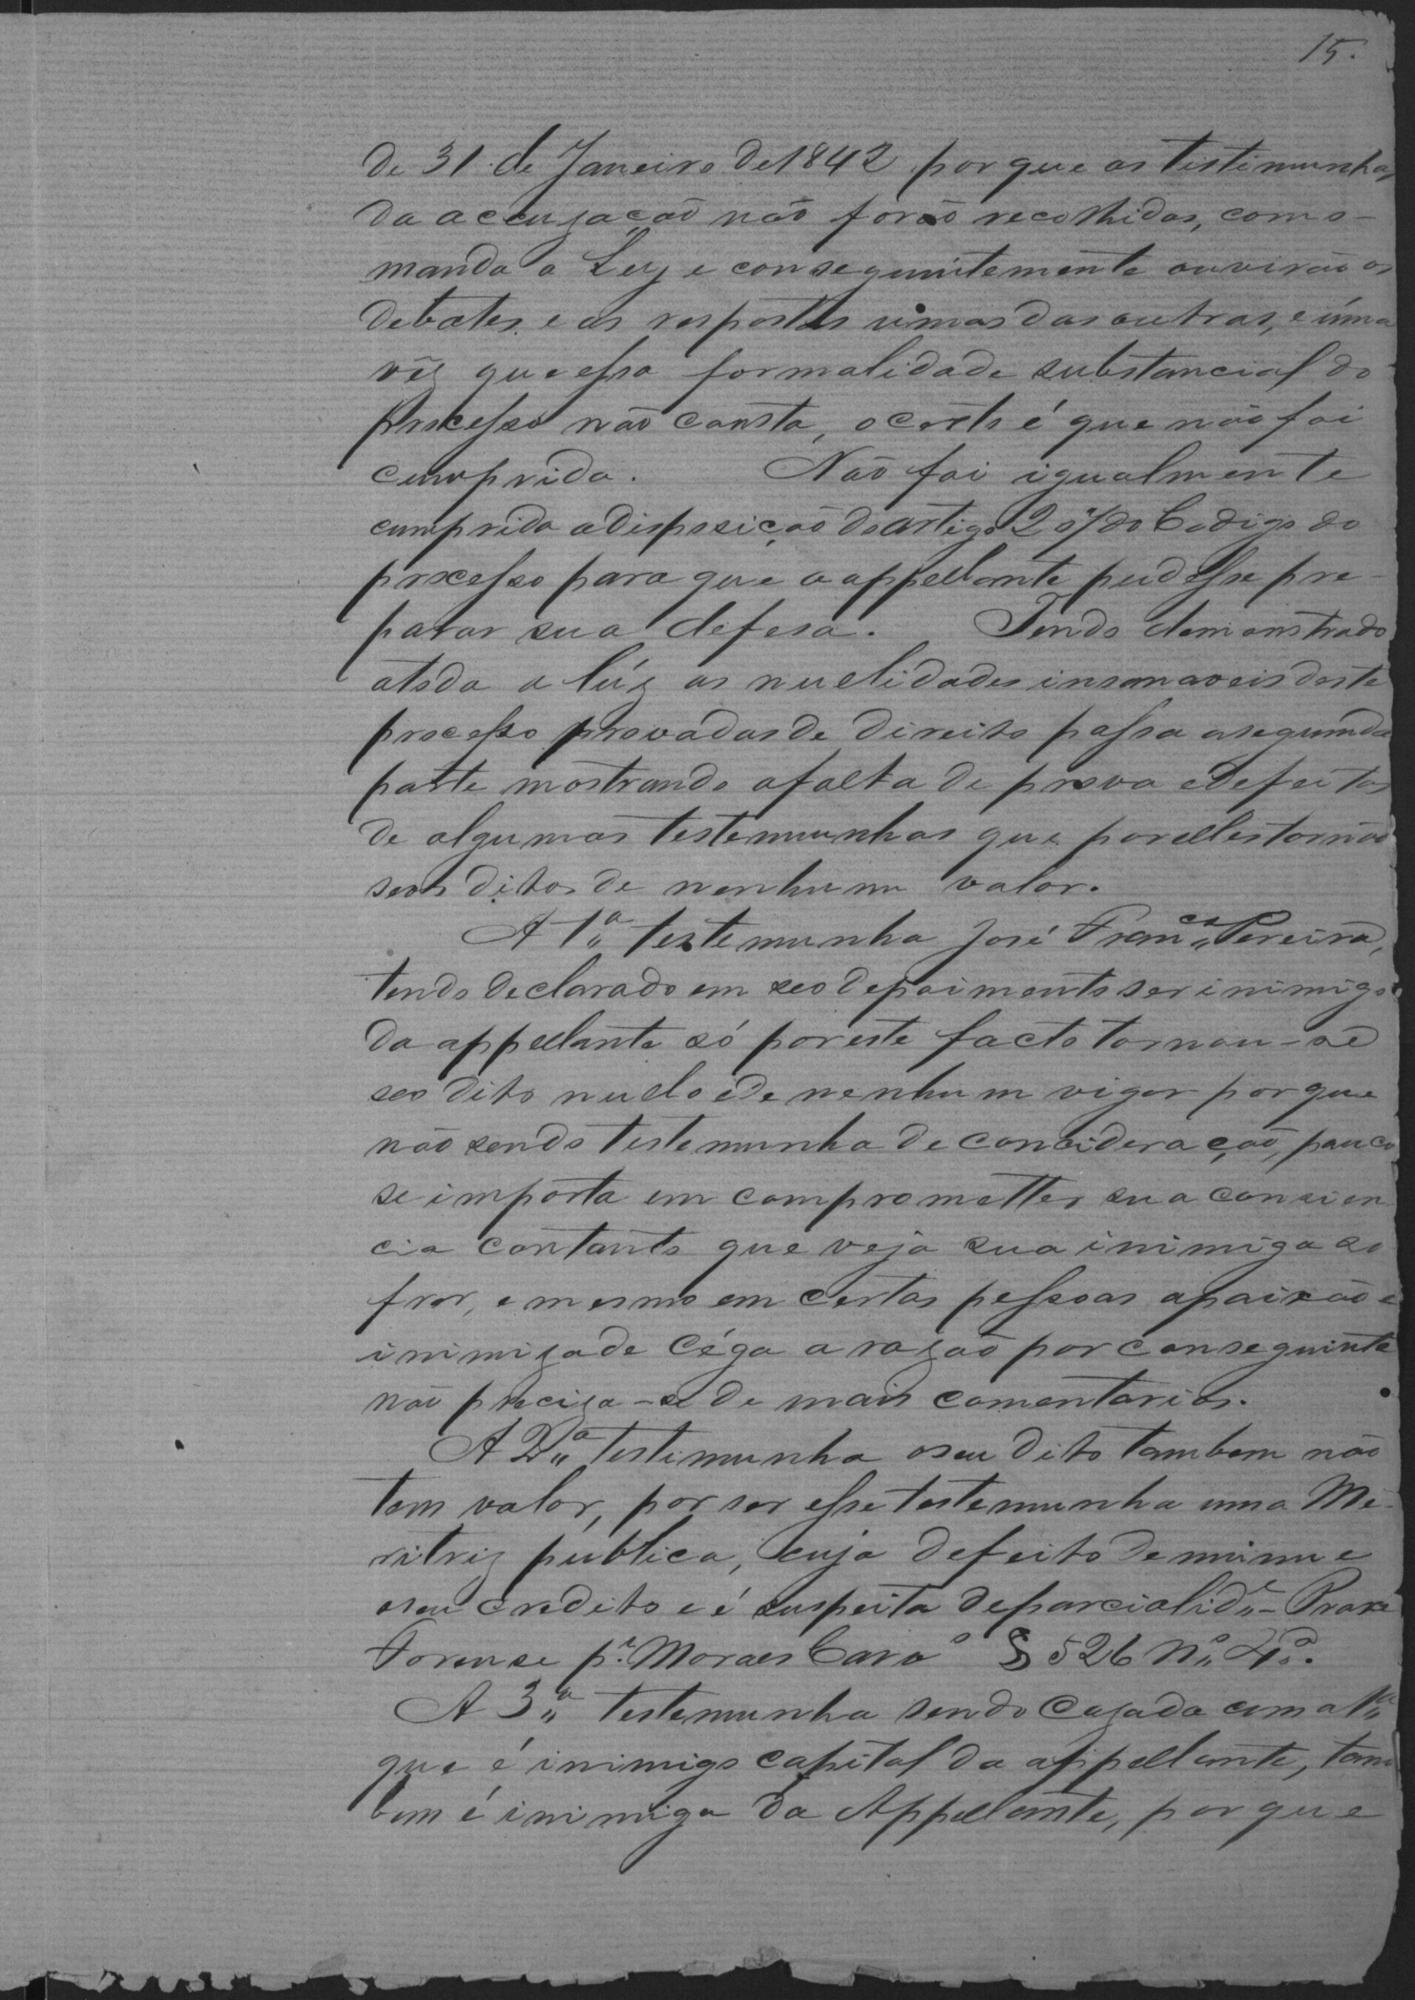 15.
de 31 de Janeiro de 1842 porque as testimunhas
da accuzação não forão recolhidas, como-
manda a Ley e conseguintemente ouvirão os
debates e as respostas umas das outras, e úma
vêz que essa formalidade substancial do
processo não consta, o certo é que não foi
cumprida. Não foi igualmente
cumprida a disposição do artigo 207 do Codigo do
processo para que a appellante pudesse pre-
parar sua defesa. Tendo demonstrado
atoda a lúz as nullidades insanaveis deste
processo provadas de direito passa a segunda
parte mostrando a falta de prova e defeitos
de algumas testemunhas que por elles tornão
seos ditos de nenhum valor.
A 1ª testemunha José Franco Pereira,
tendo declarado em seo depoimento ser inimigo
da appellante só por este facto tornou-se
seo dito nullo e de nenhum vigor porque
não sendo testemunha de concideração, pouco
se importa em comprometter sua concien
cia contanto que veja sua inimiga so
frer, e mesmo em certas pessoas apaixão e
inimizade céga a razão por conseguinte
não preciza-se de mais comentarios.
A 2ª testimunha o seu dito tambem não
tem valor, por ser esse testemunha uma Me-
ritriz publica, cuja defeito deminue
o seu credito e é suspeita de parcialide- Praxe
Forense pr Moraes Carvo § 526 nº 4º.
A 3ª testemunha sendo cazada com a 1ª
que é inimigo capital da appellante, tam
bem é inimiga da Appellante, porque